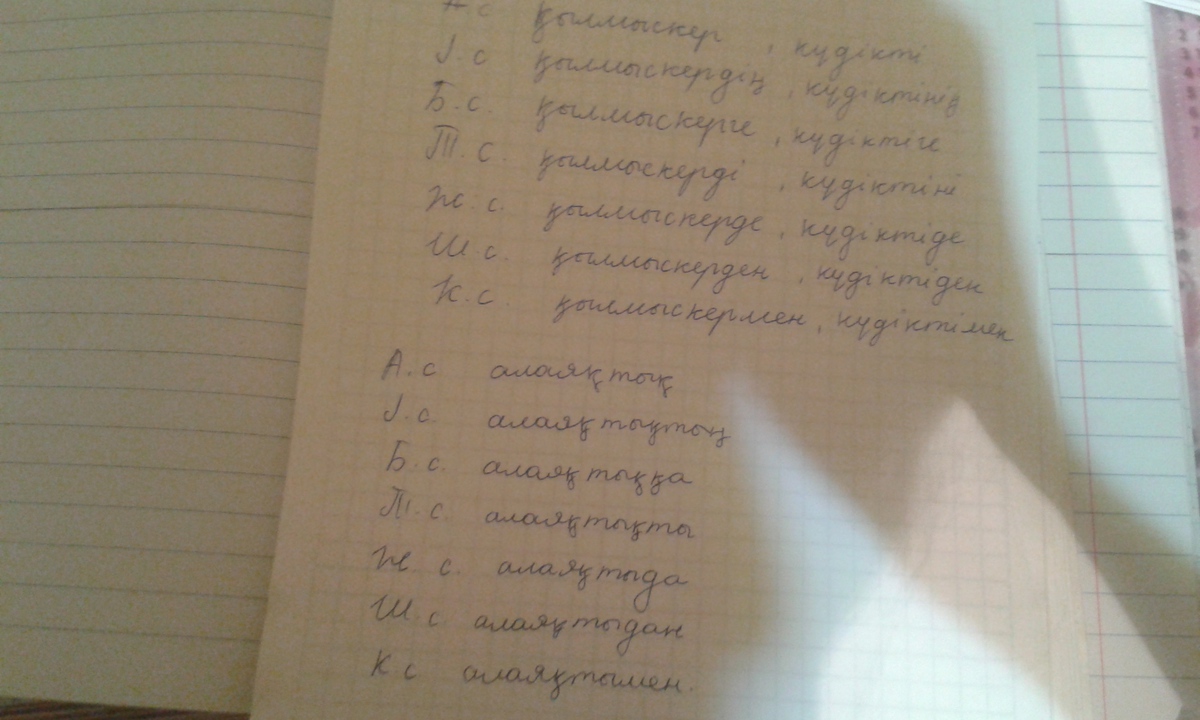 А.с қылмыскер, күдікті
І.с қылмыскердің, күдіктінің
Б.с. қылмыскерге, күдіктіге
Т.с. қылмыскерді, күдіктіні
Ж.с. қылмыскерде, күдіктіде
Ш.с. қылмыскерден, күдіктіден
К.с. қылмыскермен, күдіктімен
А.с алаяқтық
І.с. алаяқтықтың
Б.с. алаяқтыққа
Т.с. алаяқтықты
Ж.с. алаяқтыда
Ш.с алаяқтыдан
К с алаяқтымен.